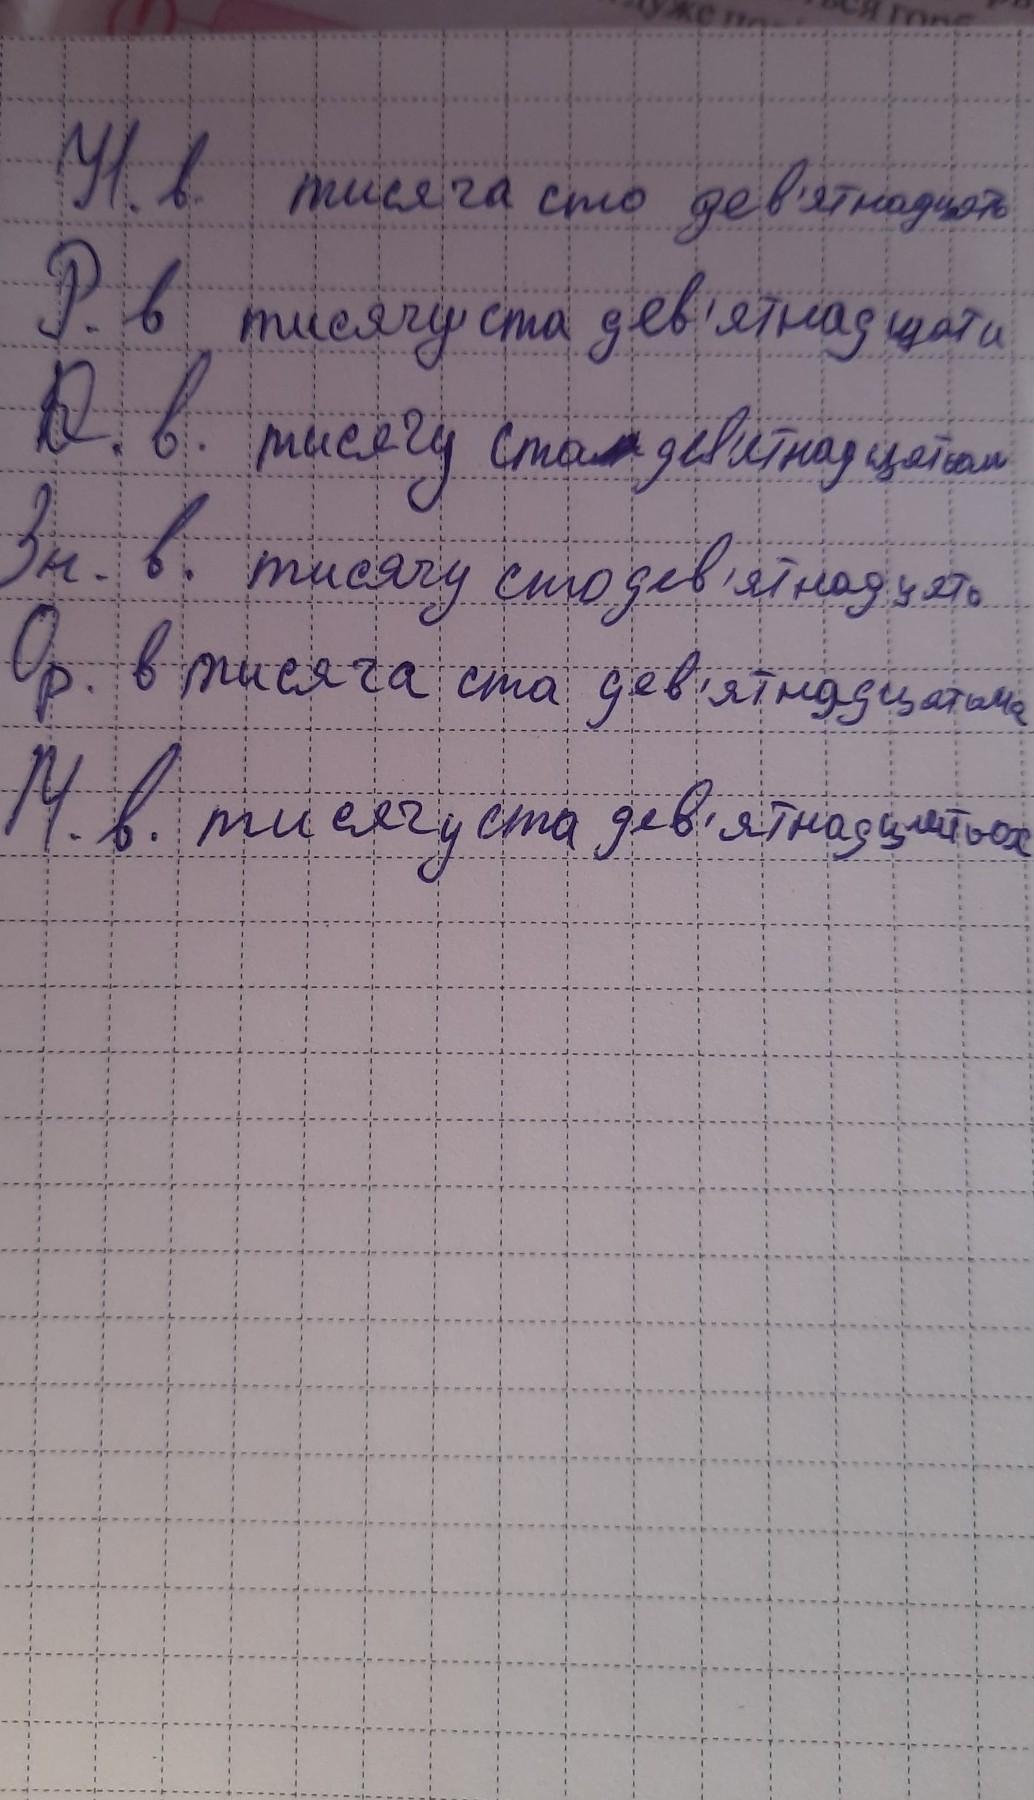 Н. в. тисяча сто дев'ятнадцять
Р. в тисячу ста дев'ятнадцати
Д. в. тисячу ста дев'ятнадцятьом
Зн. в. тисячу сто дев'ятнадцять
Ор. в тисяча ста дев'ятнадцятьма
М. в. тисячу ста дев'ятнадцятьох